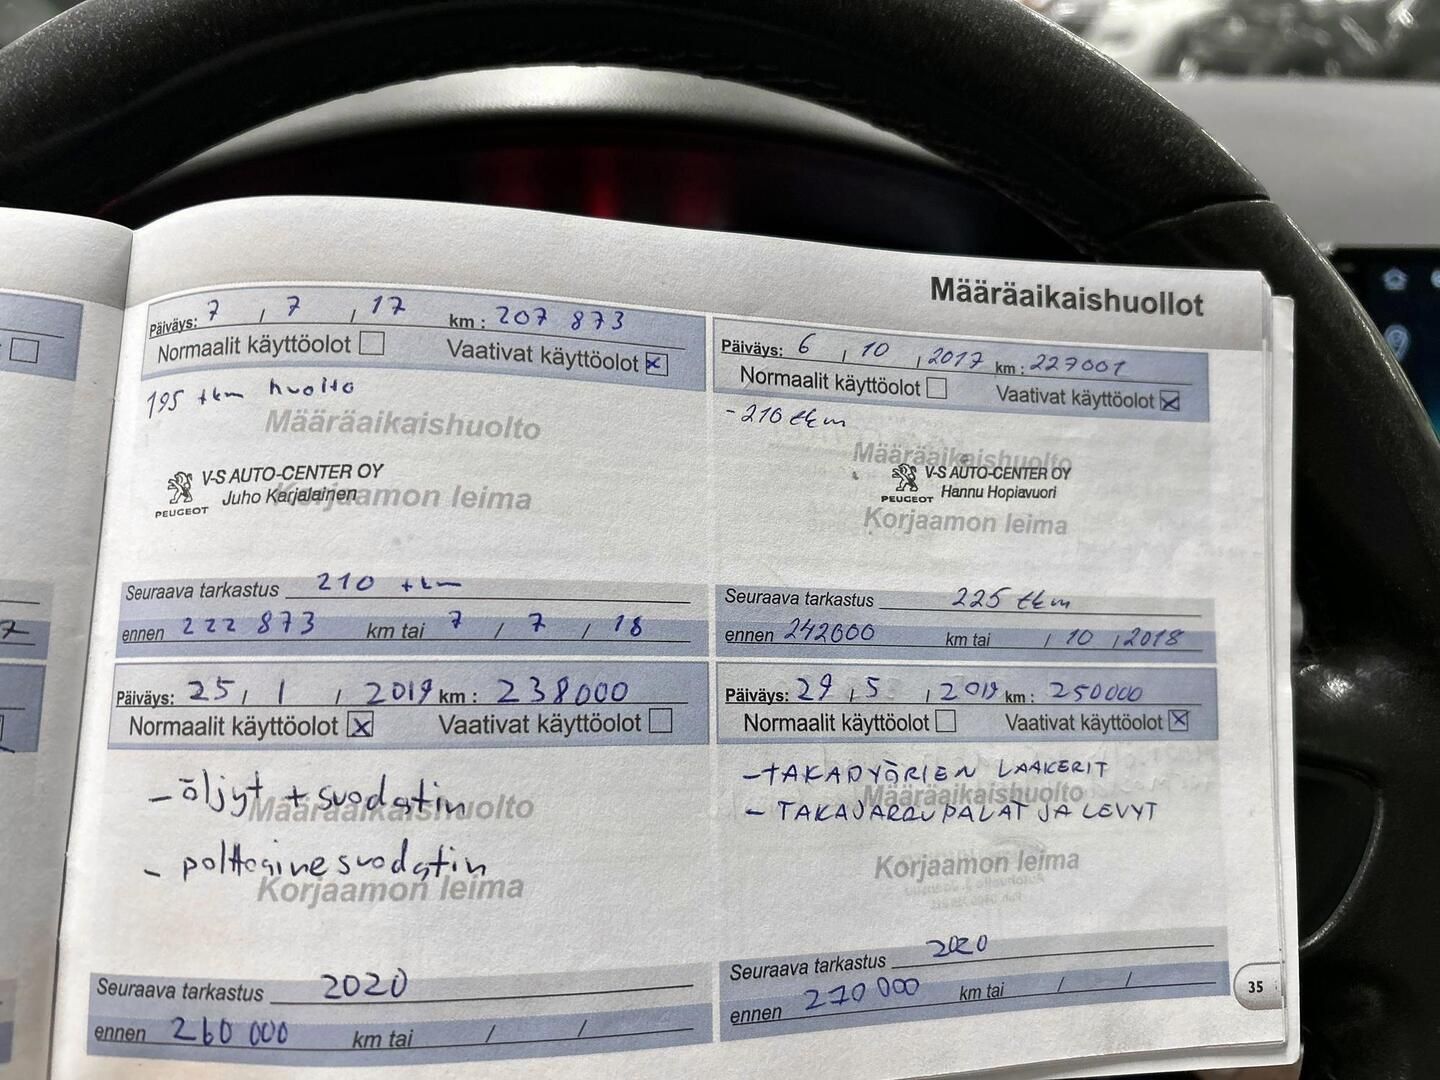 Määräaikaishuollot
Päiväys: 7 / 7 / 17 km: 207 873
Normaalit käyttöolot Vaativat käyttöolot x
195 tkm huolto
Määräaikaishuolto
V-S AUTO-CENTER OY
Juho Karjalainen
PEUGEOT
Korjaamon leima
Seuraava tarkastus 210 tkm
ennen 222 873 km tai 7 / 7 / 18
Päiväys: 6 / 10 / 2017 km: 227001
Normaalit käyttöolot Vaativat käyttöolot x
-210 tkm
Määräaikaishuolto
V-S AUTO-CENTER OY
Hannu Hopiavuori
PEUGEOT
Korjaamon leima
Seuraava tarkastus 225 tkm
ennen 242000 km tai / 10 / 2018
Päiväys: 25 / 1 / 2019 km: 238000
Normaalit käyttöolot x Vaativat käyttöolot
- öljyt + suodatin
Määräaikaishuolto
- polttoainesuodatin
Korjaamon leima
Seuraava tarkastus 2020
ennen 260 000 km tai / /
Päiväys: 29 / 5 / 2019 km: 250000
Normaalit käyttöolot Vaativat käyttöolot x
- TAKAPYÖRIEN LAAKERIT
Määräaikaishuolto
- TAKAJARRUPALAT JA LEVYT
Korjaamon leima
Seuraava tarkastus 2020
ennen 270 000 km tai / /
35